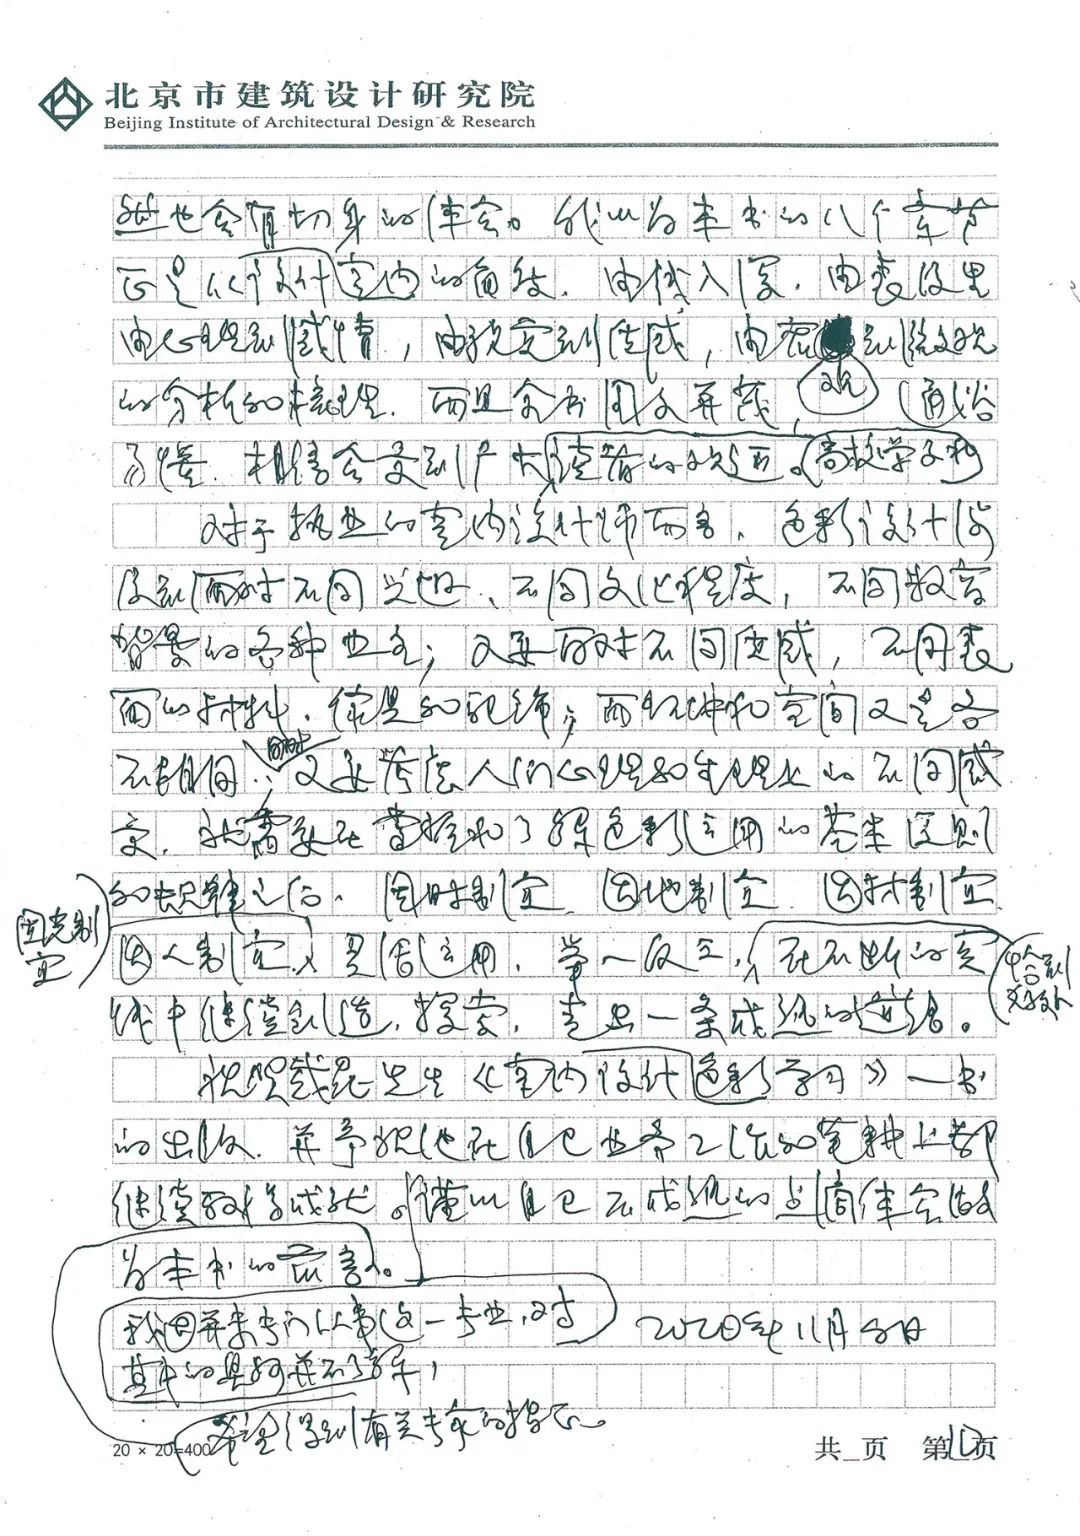 北京市建筑设计研究院
Beijing Institute of Architectural Design & Research
也会有切身的体会。我以为本书的八个章节
正是从设计室内的角度，由浅入深，由表及里
由心理到感情，由视觉到质感，由宏观到微观
的分析和梳理。而且全书图文并茂，通俗
易懂，相信会受到广大读者的欢迎。高校学子和
对于执业的室内设计师而言，色彩设计
面对不同性、不同文化程度，不同教育
背景的各种业主；又要面对不同质感，不同表
面的材料、家具和配饰；而环境和空间又是各
不相同；同时又要考虑人们心理和生理上的不同感
受，就需要在掌握和了解色彩运用的基本原则
和规律之后，因时制宜、因地制宜、因材制宜、
因人制宜，灵活运用，举一反三，在不断的实
践中继续创造，探索，走出一条成熟的道路。
祝贺先生《室内设计色彩学习》一书
的出版，并予祝他在自己业务工作和笔耕上都
继续取得成就。谨以自己不成熟的点滴体会做
为本书的前言。
我因并未专门从事这一专业，对
其中的奥妙并不了解，
希望得到有关专家的指正。
2020年11月8日
20 × 20=400
共_页 第10页